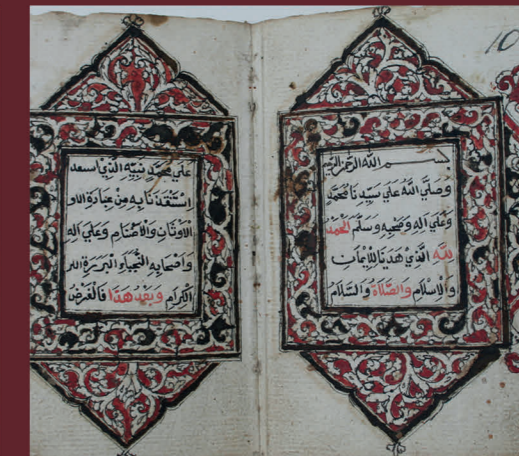 10
بِسْمِ اللَّهِ الرَّحْمٰنِ الرَّحِيمِ
وَصَلَّي اللَّهُ عَلَي سَيِّدِنَا مُحَمَّدٍ
وَعَلَي اٰلِهِ وَصَحْبِهِ وَسَلَّمَ الْحَمْدُ
لِلَّهِ الَّذِي هَدَينَا لِلْاِيْمَانِ
وَالْاِسْلَامِ وَالصَّلَاةُ وَالسَّلَامُ
عَلَي مُحَمَّدٍ نَبِيِّهِ الَّذِي
اسْتَنْقَذَنَا بِهِ مِنْ عِبَادَةِ الاو
الْاَوْثَانِ وَالْاَصْنَامِ وَعَلَي اٰلِهِ
وَاَصْحَابِهِ النُّجَبَاءِ الْبَرَرَةِ
الْكِرَامِ وَبَعْدُ هٰذَا فَالْغَرَضُ